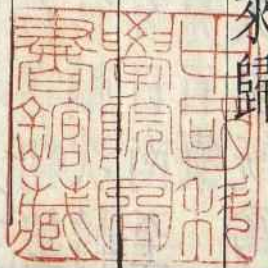 歸
中國科
學院圖
書館藏